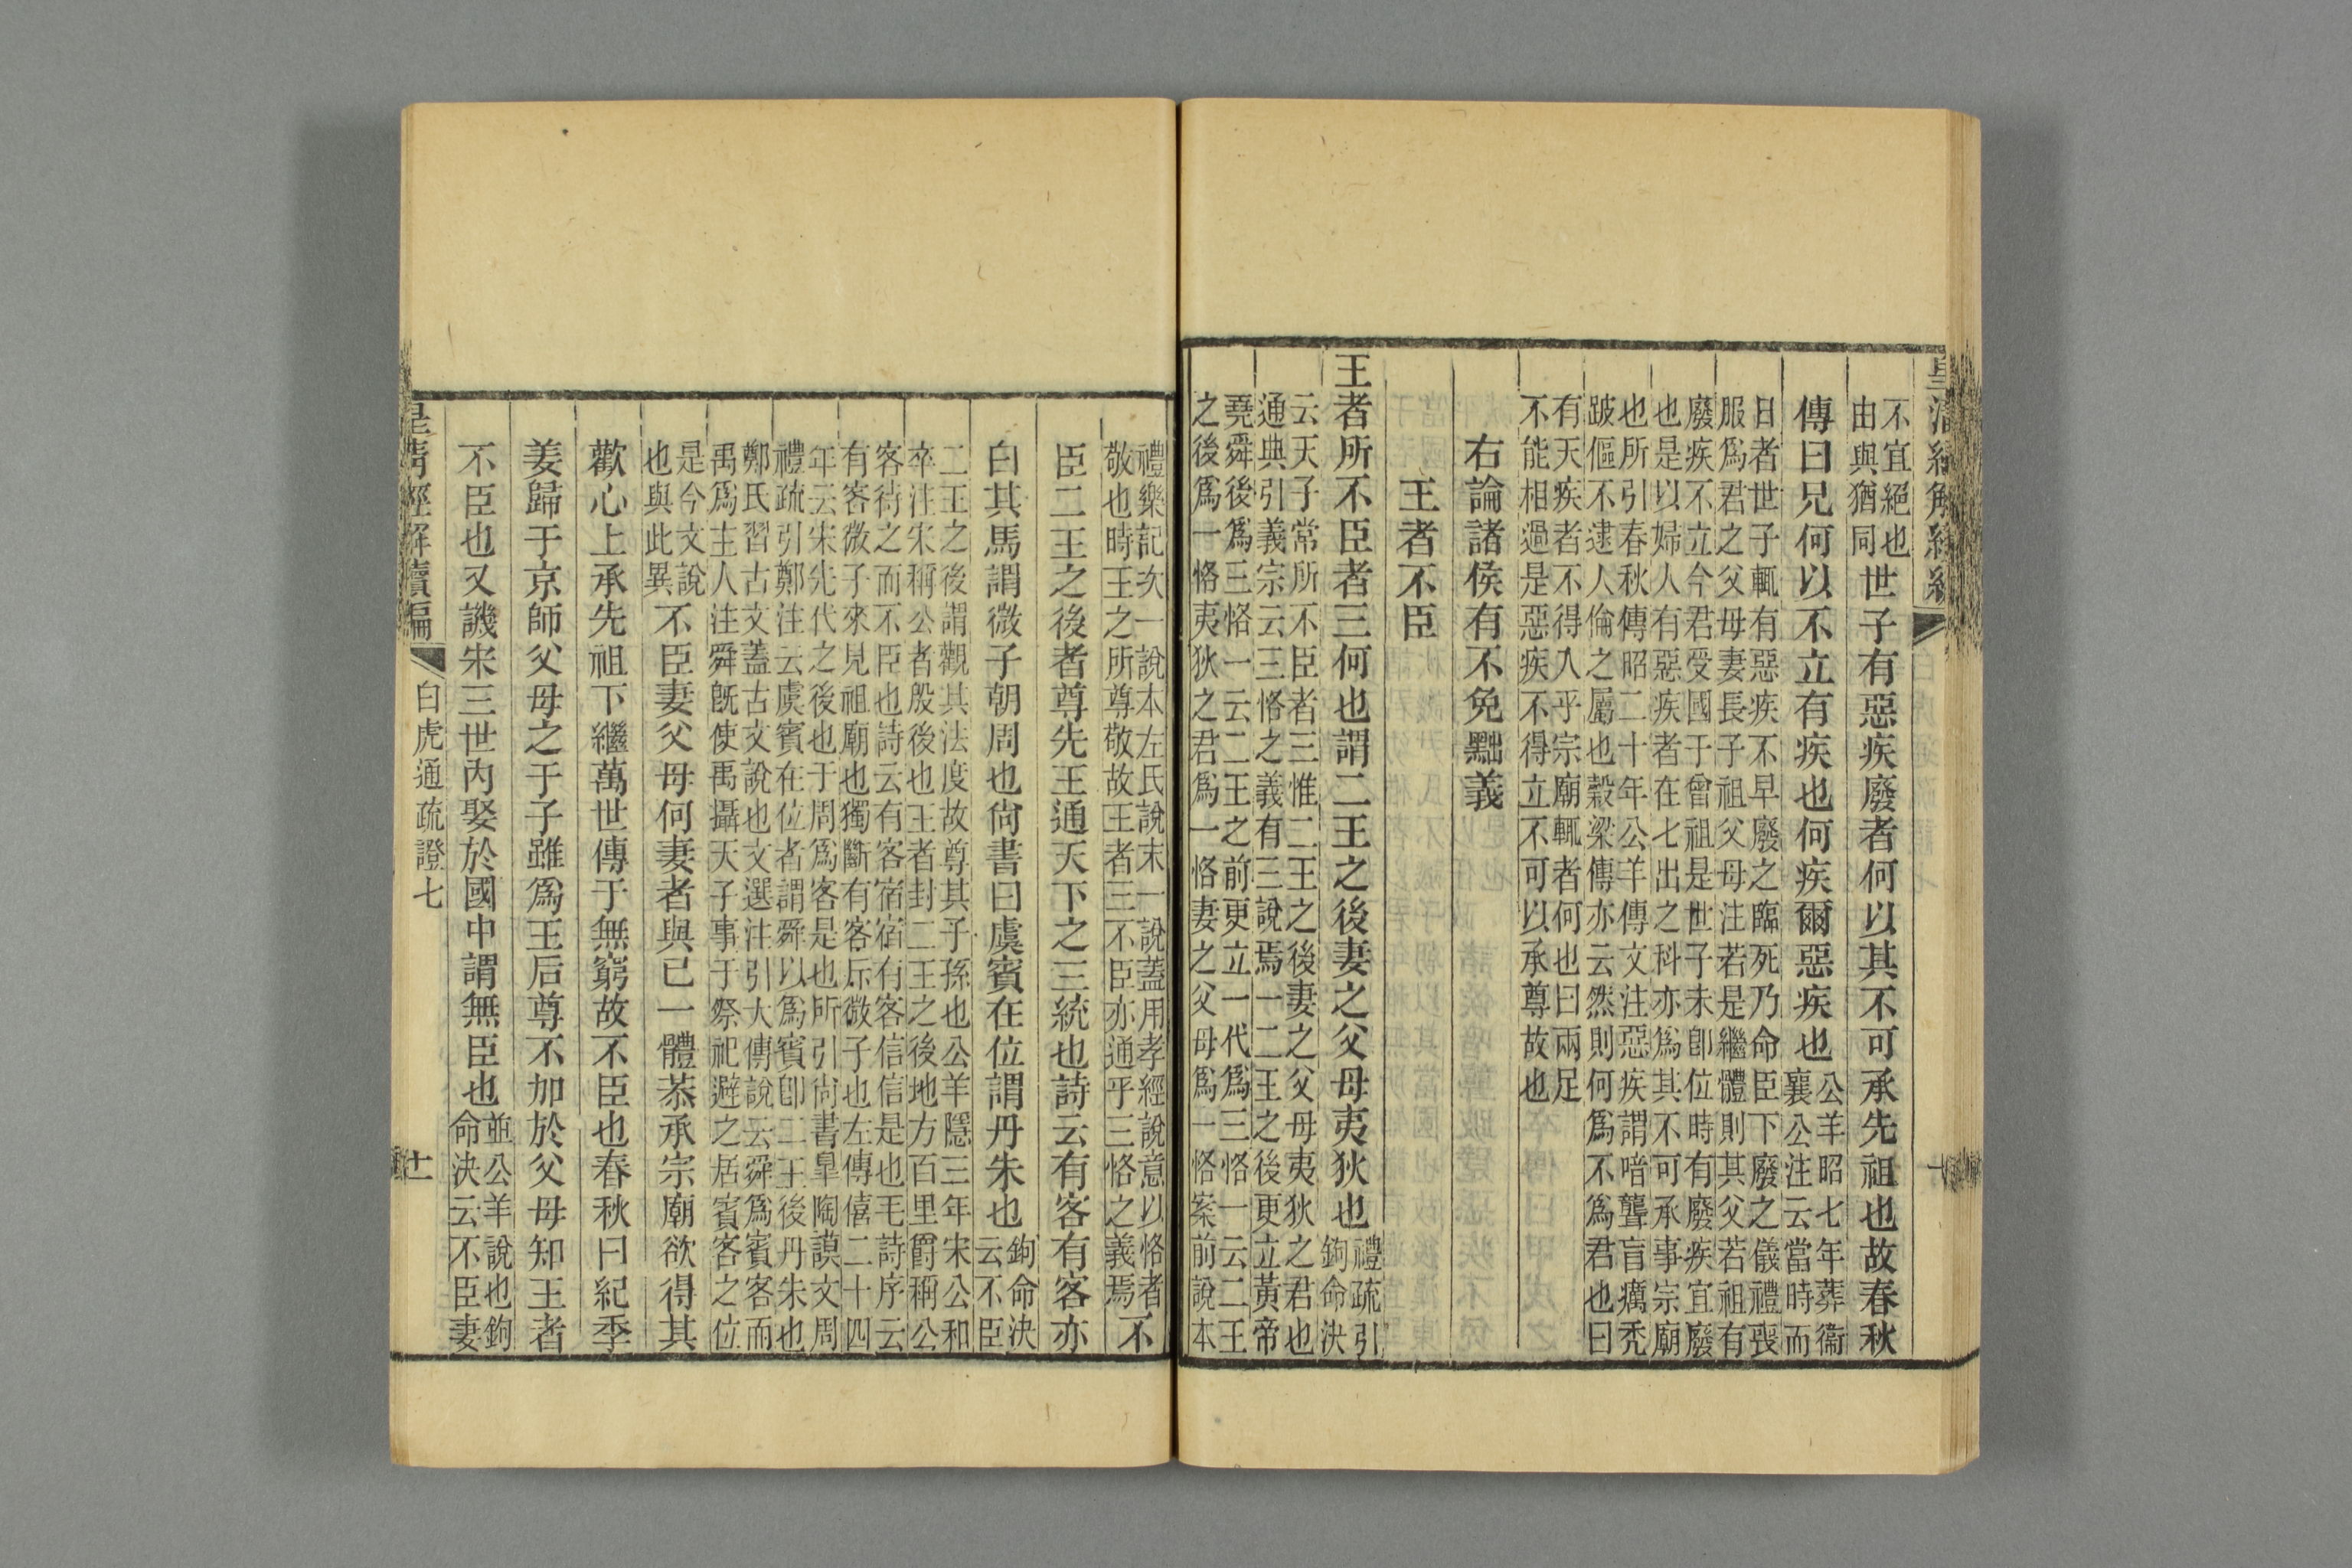 皇清經解續編
不宜絕也
由與猶同
世子有惡疾廢者何以其不可承先祖也故春秋
傳曰兄何以不立有疾也何疾爾惡疾也
公羊昭七年葬衞
襄公注云當時而
日者世子輒有惡疾不早廢之臨死乃命臣下廢之儀禮喪
服爲君之父母妻長子祖父母注若是繼體則其父若祖有
廢疾不立今君受國于曾祖是世子未卽位時有廢疾宜廢
也是以婦人有惡疾者在七出之科亦爲其不可承事宗廟
也所引春秋傳昭二十年公羊傳文注惡疾謂喑聾盲癘秃
跛傴不逮人倫之屬也穀梁傳亦云然則何爲不爲君也曰
有天疾者不得入乎宗廟輒者何也曰兩足
不能相過是惡疾不得立不可以承尊故也
右論諸侯有不免黜義
王者不臣
王者所不臣者三何也謂二王之後妻之父母夷狄也
禮疏引
鉤命決
云天子常所不臣者三惟二王之後妻之父母夷狄之君也
通典引義宗云三恪之義有三說焉一二王之後更立黃帝
堯舜後爲三恪一云二王之前更立一代爲三恪一云二王
之後爲一恪夷狄之君爲一恪妻之父母爲一恪案前說本
禮樂記次一說本左氏說末一說蓋用孝經說意以恪者
敬也時王之所尊敬故王者三不臣亦通乎三恪之義焉
不
臣二王之後者尊先王通天下之三統也詩云有客有客亦
白其馬謂微子朝周也尙書曰虞賓在位謂丹朱也
鉤命決
云不臣
二王之後謂觀其法度故尊其子孫也公羊隱三年宋公和
卒注宋稱公者殷後也王者封二王之後地方百里爵稱公
客待之而不臣也詩云有客宿宿有客信信是也毛詩序云
有客微子來見祖廟也獨斷有客斥微子也左傳僖二十四
年云宋先代之後也于周爲客是也所引尙書皐陶謨文周
禮疏引鄭注云虞賓在位者謂舜以爲賓卽二王後丹朱也
鄭氏習古文蓋古文說也文選注引大傳說云舜爲賓客而
禹爲主人注舜旣使禹攝天子事于祭祀避之居賓客之位
是今文說
也與此異
不臣妻父母何妻者與已一體恭承宗廟欲得其
歡心上承先祖下繼萬世傳于無窮故不臣也春秋曰紀季
姜歸于京師父母之于子雖爲王后尊不加於父母知王者
不臣也又譏宋三世內娶於國中謂無臣也
並公羊說也鉤
命決云不臣妻
皇清經解續編
白虎通疏證七
十一